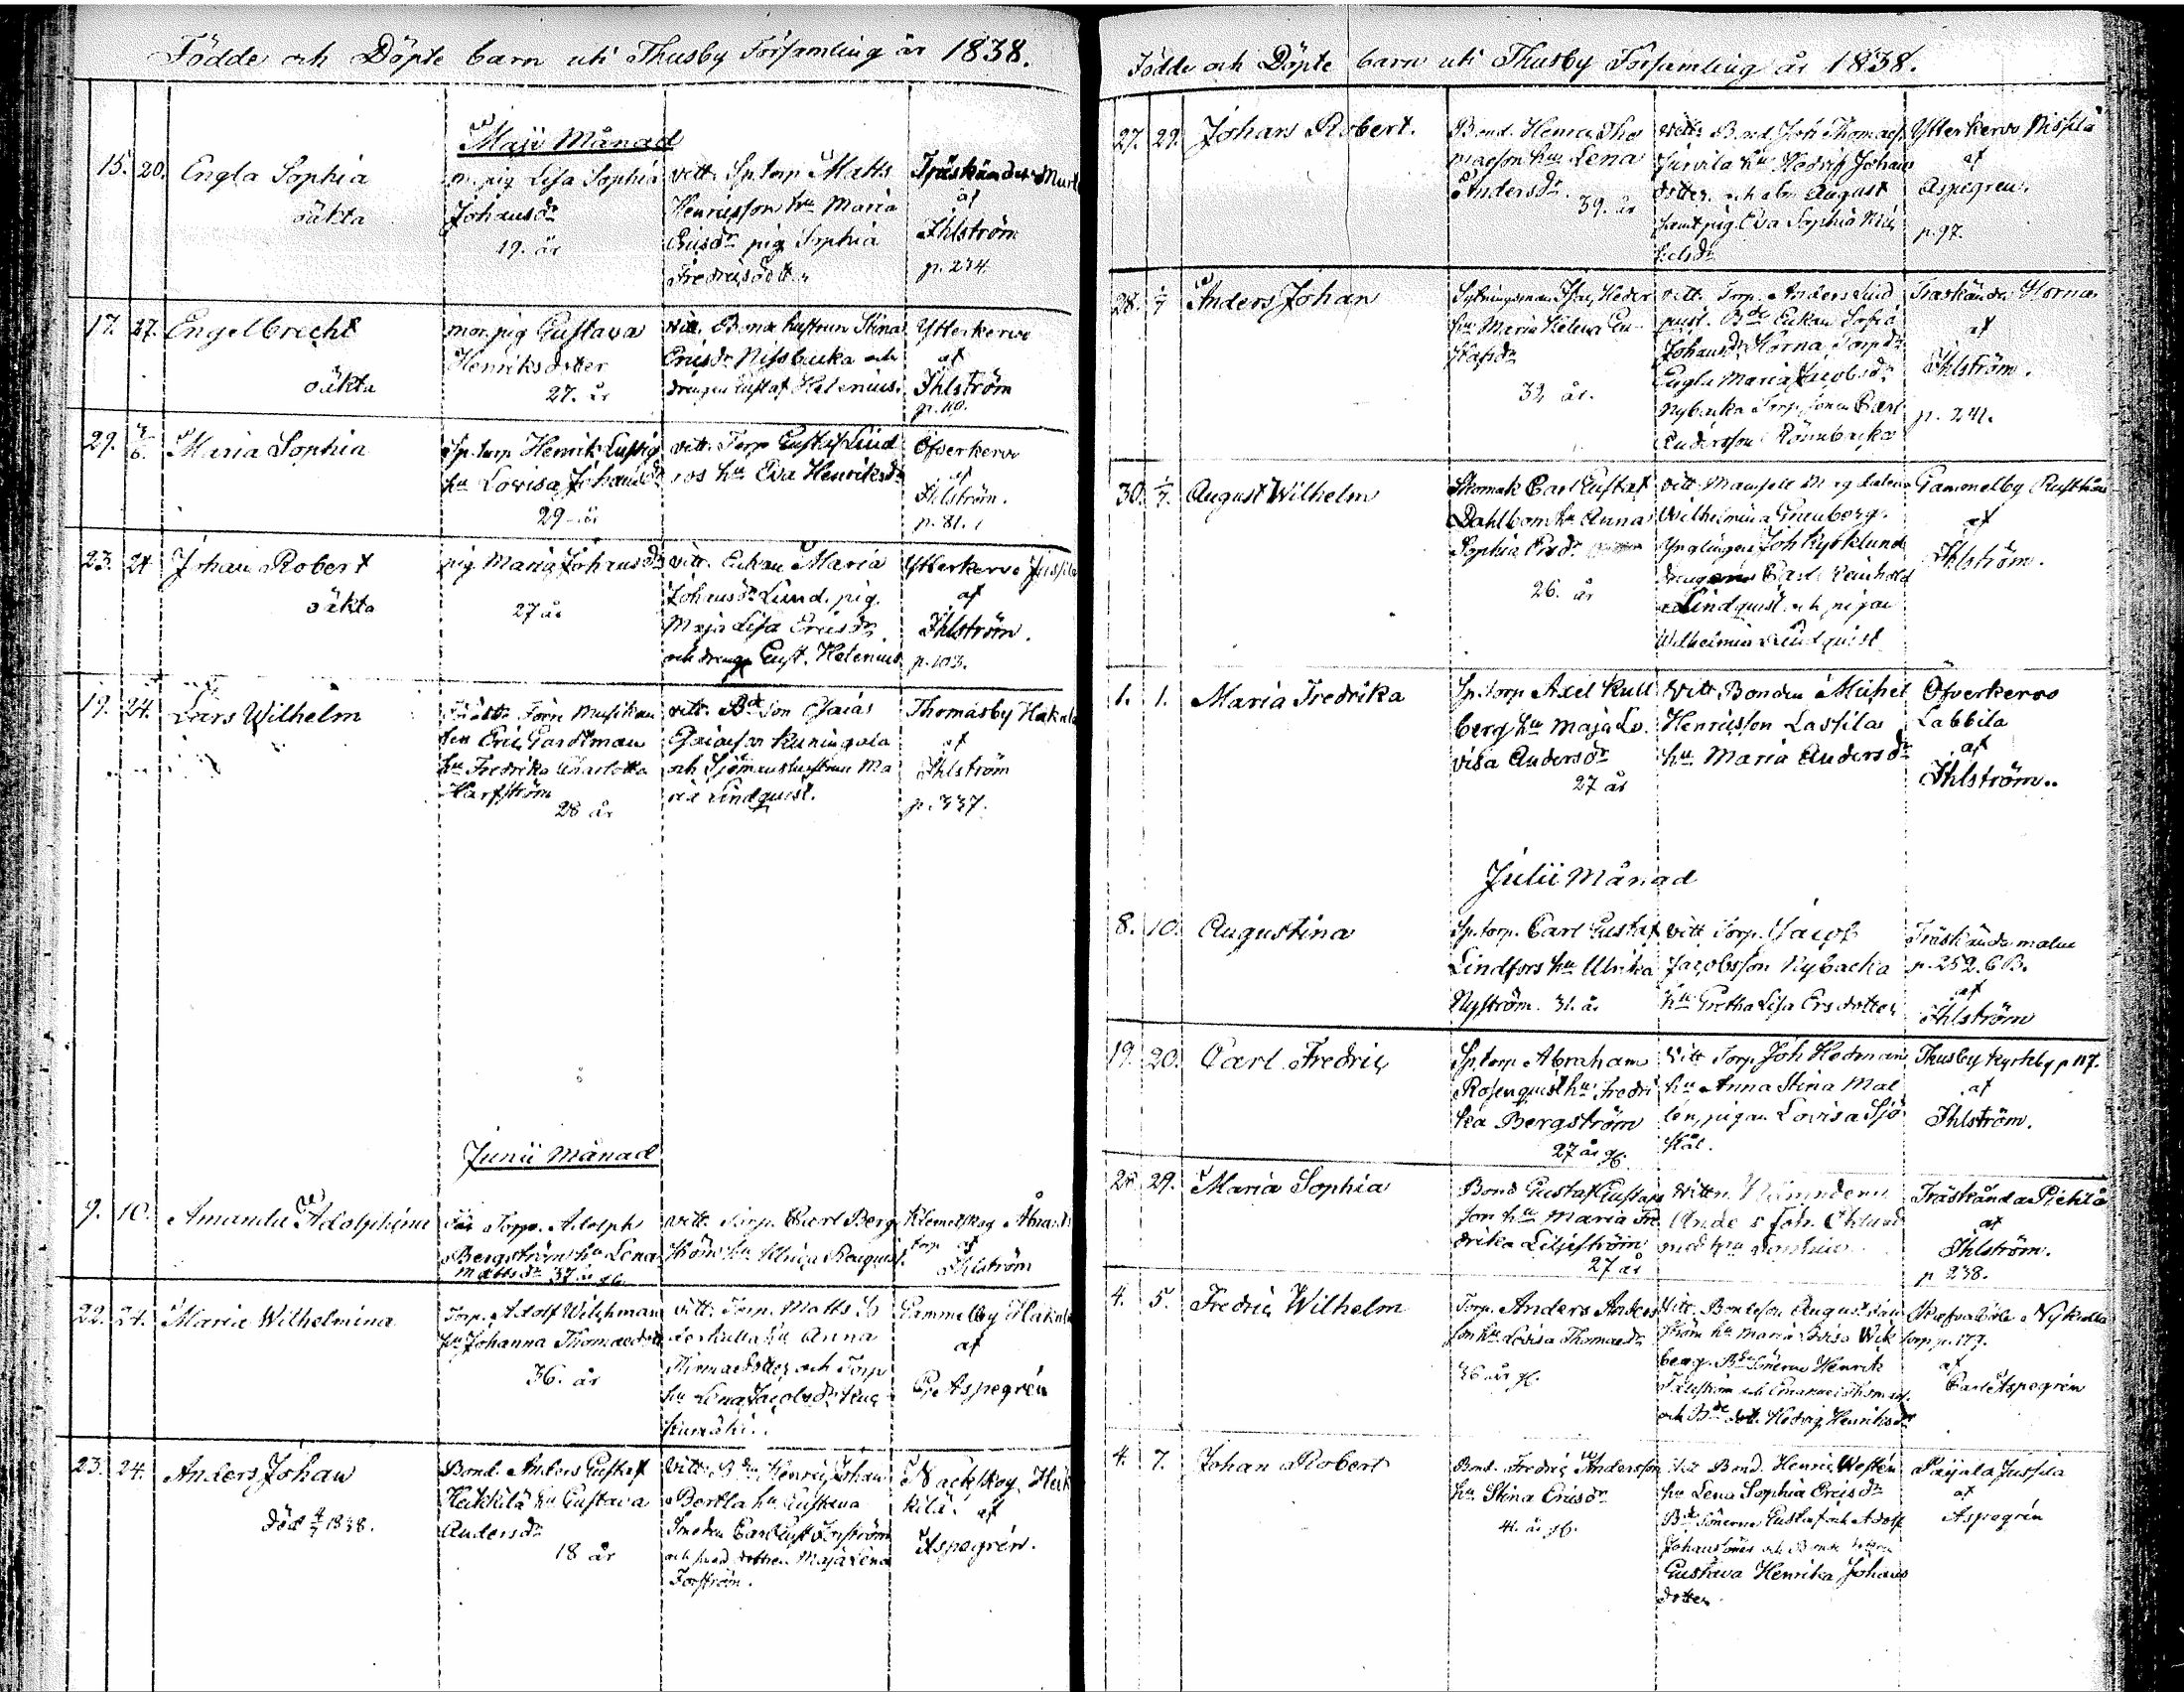 Födde och Döpte barn uti Thusby Församling år 1838.
Maii Månad
15. 20. Engla Sophia
oäkta
m. pig Lisa Sophia
Johansdr
19. år
vitt. Sp.torp Matts
Henricsson hu Maria
Ericsdr pig Sophia
Fredricsdott.
Träskända
af
Ihlström
p. 234.
17. 27. Engelbrecht
oäkta
mor. pig Gustava
Henriksdotter
27. år
vitt. Bonde hustrun Stina
Ericsdr Nissbacka och
drengen Gustaf Helenius.
Ytterkervo
af
Ihlström
p. 110.
29. 4/6. Maria Sophia
Sp.torp Henrik Lustig
hu Lovisa Johansdr
29 år
vitt. Torp Gustaf Lind
ros hu Eva Henriksdr
Öfverkervo
af
Ihlström.
p. 81.
23. 24 Johan Robert
oäkta
pig Maria Johansdr
27 år
vitt. Enkan Maria
Johansdr Lund. pig.
Maja Lisa Ericsdr
och dreng Gust. Helenius
Ytterkervo Jussila
af
Ihlström.
p. 103.
19. 24. Lars Wilhelm
förre Musikan
ten Eric Gardtman
hu Fredrika Charlotta
Harfström
28 år
vitt. Bd son Esaias
Esaiasson Kuningala
och Sjömanshustrun Ma
ria Lindquist.
Thomasby Hakala
af
Ihlström
p. 337.
Junii Månad
9. 10. Amanda Adolphina
Torp. Adolph
Bergström hu Lena
Mattsdr 37 år gl.
vitt. Torp. Carl Berg
ström hu Ulrica Renquist.
Klemetskog Åbrands
torp af
Ihlström
22. 24. Maria Wilhelmina
Torp. Adolf Wilchman
hu Johanna Thomasdotter
36. år
vitt. Torp. Matts
hu Anna
och Torp
hu Lena Jacobsdr
Gammelby Hakala
af
C. Aspegrén
23. 24. Anders Johan
död 4/7 1838.
Bond. Anders Gustaf
Heikkilä hu Gustava
Andersdr
18 år
vitt. Bdn Henric Johan
Bertla hu Gustava
Smeden Carl Gust
och dottren Maja Lena
Forström.
Nackskog. Heik
kilä. af
Aspegrén.
Födde och Döpte barn uti Thusby Församling år 1838.
27. 29. Johan Robert.
Bond. Henric Tho
masson hu Lena
Andersdr.
39. år
vitt. Bond. Joh Thomass.
Jurvila hu Hedvig Johans
dotter, och August
samt pig. Eva Sophia Mic
kelsdr
Ytterkervo Nissilä
af
Aspegren.
p. 97.
28. 1/7 Anders Johan
Sytningsman Heder
hu Maria Helena Gu
stafsdr
32 år.
vitt. Torp. Anders Lind
quist. Bde Enkan Sofia
Johansdr Horna, Torpdr
Engla Maria Jacobsdr
Nybacka Torp. sonen Carl
Andersson Rönnbacka
Träskända Horna
af
Ihlström.
p. 241.
30. 1/7. August Wilhelm
Skomak Carl Gustaf
Dahlbom hu Anna
Sophia Ersdr
26. år
vitt. Mamsele
Wilhelmina Grenborg.
Ynglingen Joh Kyrklund
drengarne Carl Reinhold
Lindquist och pigan
Wilhelmina Lindquist
Gammelby Rusthåll
af
Ihlström.
1. 1. Maria Fredrika
Sp.torp Axel Kull
berg hu Maja Lo
visa Andersdr
27 år
Vitt. Bonden Michel
Henricsson Lassila
hu Maria Andersdr
Öfverkervo
Labbila
af
Ihlström.
Julii Månad
8. 10. Augustina
Sp.torp. Carl Gustaf
Lindfors hu Ulrika
Nyström. 31. år
vitt Torp. Jacob
Jacobsson Nybacka
hu Gretha Lisa Ersdotter
Träskända malm
p. 252. 6 B.
af
Ihlström
19. 20. Carl Fredric
Sp.torp Abraham
Rosenquist hu Fredri
ka Bergström
27 år gl.
Vitt Torp. Joh Hedman
hu Anna Stina Mal
lén, pigan Lovisa Sjö
stål.
Thusby Kyrkby p 117.
af
Ihlström.
28. 29. Maria Sophia
Bond Gustaf Gustafs
son hu Maria Fre
drika Liljeström
27 år
Vittn. Nämndem.
Anders Joh. Eklund
med hu
Träskända Piehtä
af
Ihlström.
p 238.
4. 5. Fredric Wilhelm
Torp. Anders Anders
son hu Lovisa Thomasdr
36 år gl.
Vitt. Bondeson August
ström hu Maria Lovisa Wik
berg. Bdesönerne Henrik
och Emanuel Thomass.
och Bde dott. Hedvig Henriksdr
Skafvaböle Nykulla
torp p. 177.
af
Carl Aspegrén
4. 7. Johan Robert
Bond. Fredric Andersson
hu Stina Ericsdr
41. år gl.
Vitt Bond. Henric Westén
hu Lena Sophia Ericsdr
Bdesönerne Gustaf och Adolf
Johanssöner och Bonde dottren
Gustava Henrika Johans
dotter
Paijala Jussila
af
Aspegrén